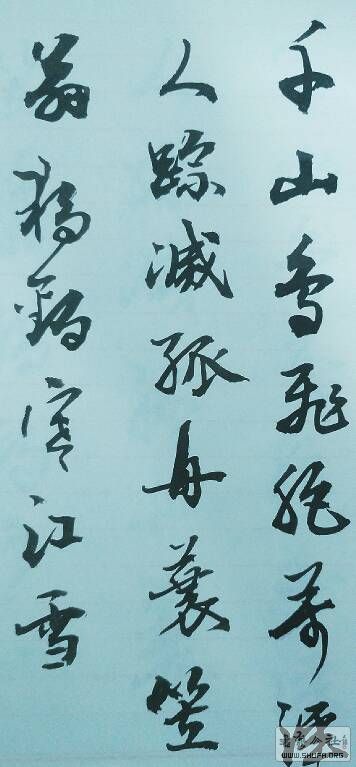 千山鳥飛絕萬徑
人蹤滅孤舟蓑笠
翁獨釣寒江雪
WWW.SHUFA.ORG